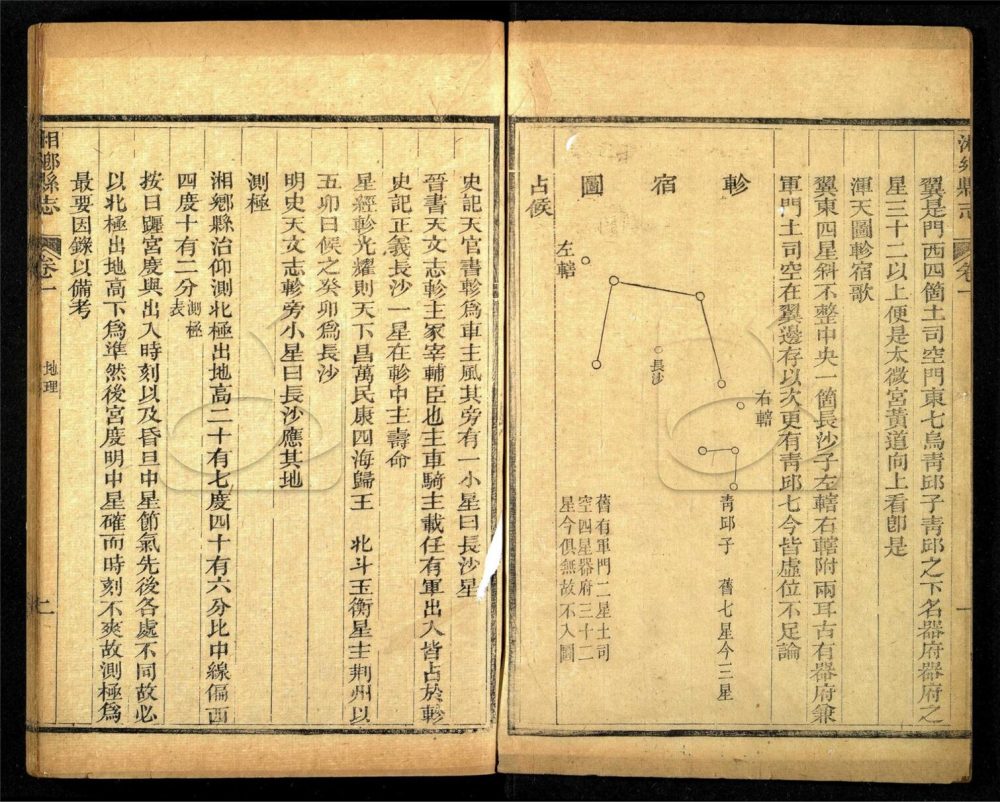 湘鄉縣志
卷一
翼是門西四箇土司空門東七烏靑邱子靑邱之下名器府器府之
星三十二以上便是太微宮黃道向上看卽是
渾天圖軫宿歌
翼東四星斜不整中央一箇長沙子左轄右轄附兩耳古有器府兼
軍門土司空在翼邊存以次更有靑邱七今皆虛位不足論
軫宿圖
右轄
長沙
左轄
靑邱子
舊七星今三星
舊有軍門二星土司
空四星器府三十二
星今俱無故不入圖
占候
史記天官書軫爲車主風其旁有一小星曰長沙星
晉書天文志軫主冢宰輔臣也主車騎主載任有軍出入皆占於軫
史記正義長沙一星在軫中主壽命
星經軫光耀則天下昌萬民康四海歸王 北斗玉衡星主荆州以
五卯日候之癸卯爲長沙
明史天文志軫旁小星曰長沙應其地
測極
湘鄉縣治仰測北極出地高二十有七度四十有六分比中線偏西
四度十有二分測極表
按日躔宮度與出入時刻以及昏旦中星節氣先後各處不同故必
以北極出地高下爲準然後宮度明中星確而時刻不爽故測極爲
最要因錄以備考
湘鄉縣志
卷一
地理